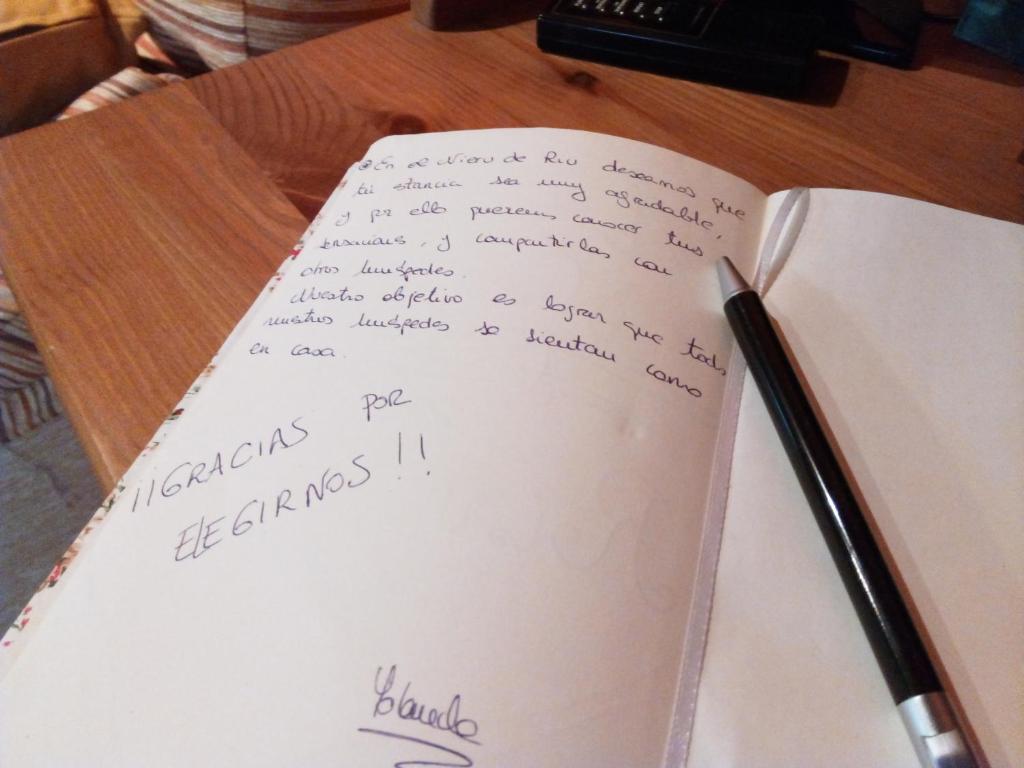 En el Nieru de Riu deseamos que
tu estancia sea muy agradable,
y por ello queremos conocer tus
sensaciones, y compartirlas con
otros huéspedes.
Nuestro objetivo es lograr que todos
nuestros huéspedes se sientan como
en casa.
¡¡GRACIAS POR
ELEGIRNOS!!